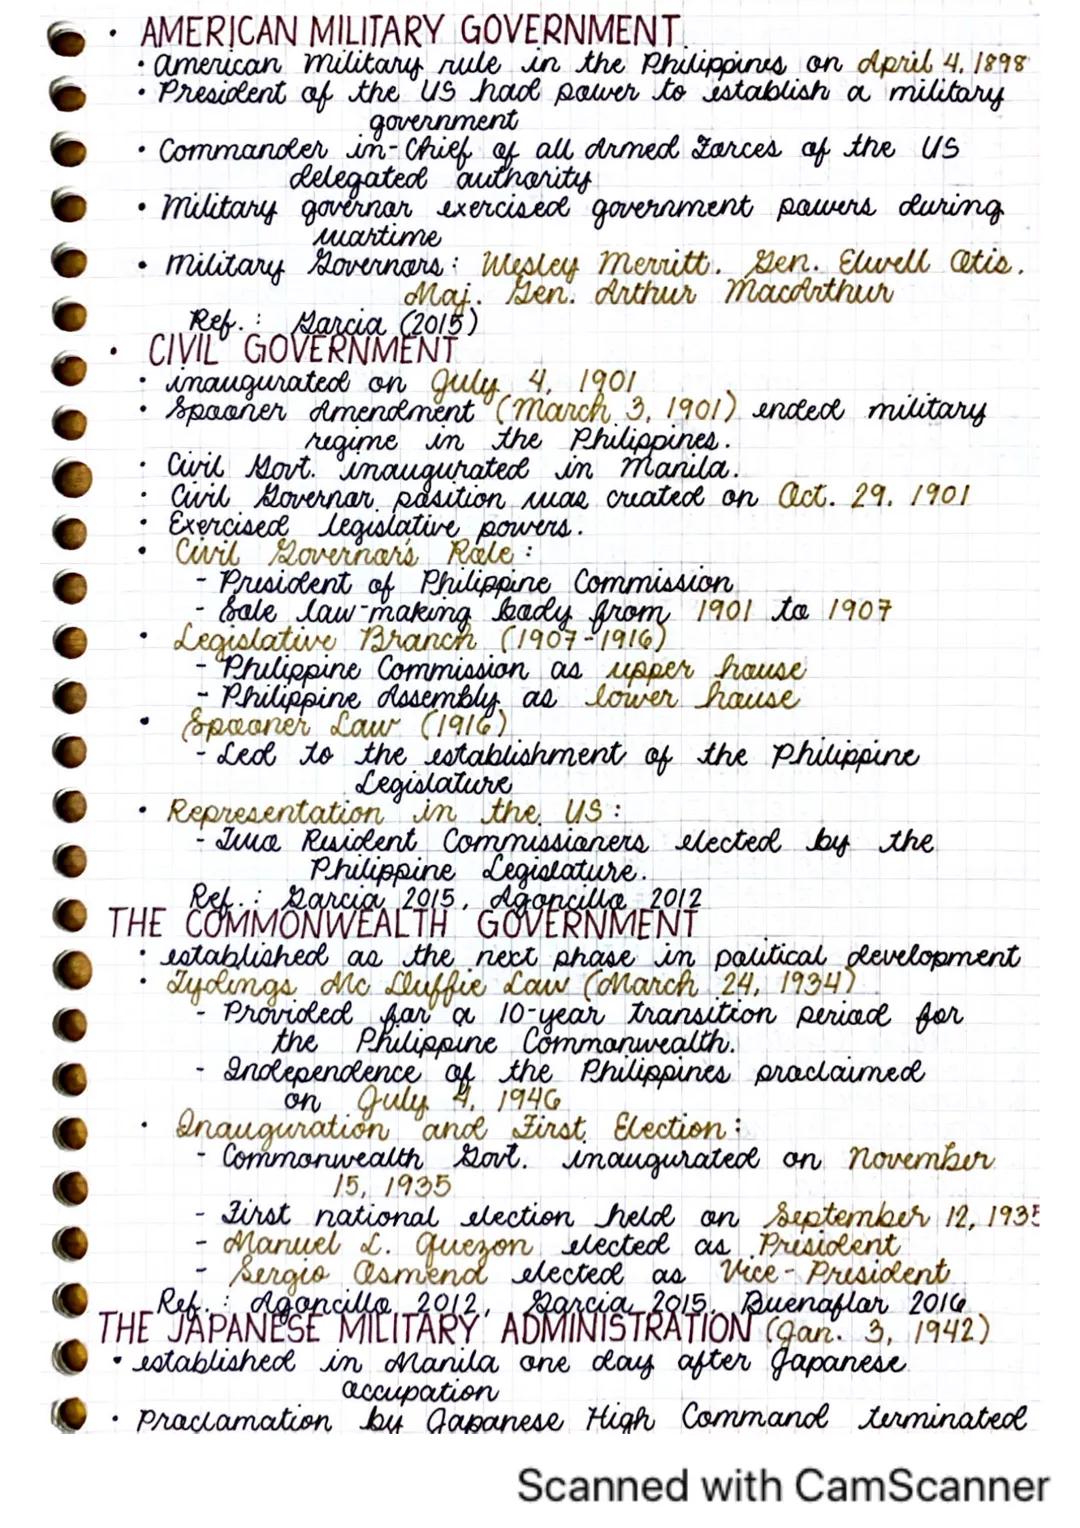 • AMERICAN MILITARY GOVERNMENT
• American military rule in the Philippines on April 4, 1898
• President of the US had power to establish a military
government
• Commander in-Chief of all Armed Forces of the US
delegated authority
• Military governor exercised government powers during
wartime
• Military Governors: Wesley Merritt. Gen. Elwell Otis.
Maj. Gen. Arthur MacArthur
Ref.: Garcia (2015)
• CIVIL GOVERNMENT
• inaugurated on July 4, 1901
• Spooner Amendment (March 3, 1901) ended military
regime in the Philippines.
• Civil Govt. inaugurated in Manila.
• Civil Governor position was created on Oct. 29. 1901
• Exercised legislative powers.
• Civil Governor's Role:
- President of Philippine Commission
- Sole law-making body from 1901 to 1907
• Legislative Branch (1907-1916)
- Philippine Commission as upper house
- Philippine Assembly as lower house
• Spooner Law (1916)
- Led to the establishment of the Philippine
Legislature
• Representation in the US:
- Two Resident Commissioners elected by the
Philippine Legislature.
Ref.: Garcia 2015, Agoncillo 2012
THE COMMONWEALTH GOVERNMENT
• established as the next phase in political development
• Tydings Mc Duffie Law (March 24, 1934)
- Provided for a 10-year transition period for
the Philippine Commonwealth.
- Independence of the Philippines proclaimed
on July 4, 1946
• Inauguration and First Election:
- Commonwealth Govt. inaugurated on November
15, 1935
- First national election held on September 12, 1935
- Manuel L. Quezon elected as President
- Sergio Osmend elected as Vice-President
Ref.: Agoncillo 2012, Garcia 2015, Buenaflor 2016
THE JAPANESE MILITARY ADMINISTRATION (Jan. 3, 1942)
• established in Manila one day after Japanese
occupation
• Proclamation by Japanese High Command terminated
Scanned with CamScanner